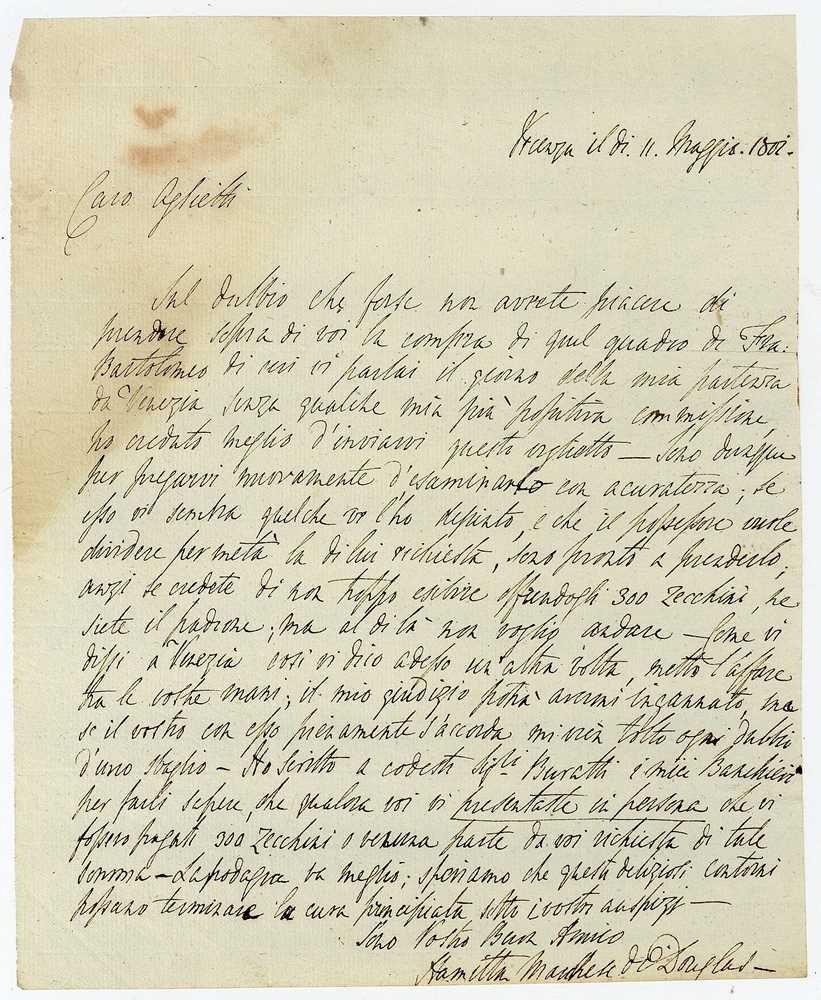 Vicenza il di. 11. Maggio. 1801.
Caro Aglietti
Sul dubbio che forse non avrete piacere di
prendere sopra di voi la compra di quel quadro di Fra:
Bartolomeo di cui vi parlai il giorno della mia partenza
da Venezia senza qualche mia più positiva commissione,
ho creduto meglio d'inviarvi questo viglietto — Sono dunque
per pregarvi nuovamente d'esaminarlo con acuratezza; se
esso vi sembra quelche ve l'ho depinto, e che il possessore vuole
dividere per metà la di lui richiesta, sono pronto a prenderlo;
anzi se credete di non troppo esibire offrendogli 300 Zecchini, ne
siete il padrone; ma al di là non voglio andare — Come vi
dissi a Venezia così vi dico adesso un'altra volta, metto l'affare
tra le vostre mani; il mio giudizio potrà avermi ingannato, ma
se il vostro con esso pienamente s'accorda mi vien tolto ogni dubbio
d'uno sbaglio — Ho scritto a codesti Sigri Buratti i miei Banchieri
per farli sapere, che qualora voi vi presentaste in persona che vi
fossero pagati 300 Zecchini o veruna parte da voi richiesta di tale
somma — La podagra va meglio; speriamo che questi deliziosi contorni
possano terminare la cura principiata sotto i vostri auspizj —
Sono Vostro Buon Amico
Hamilton Marchese di Douglas —